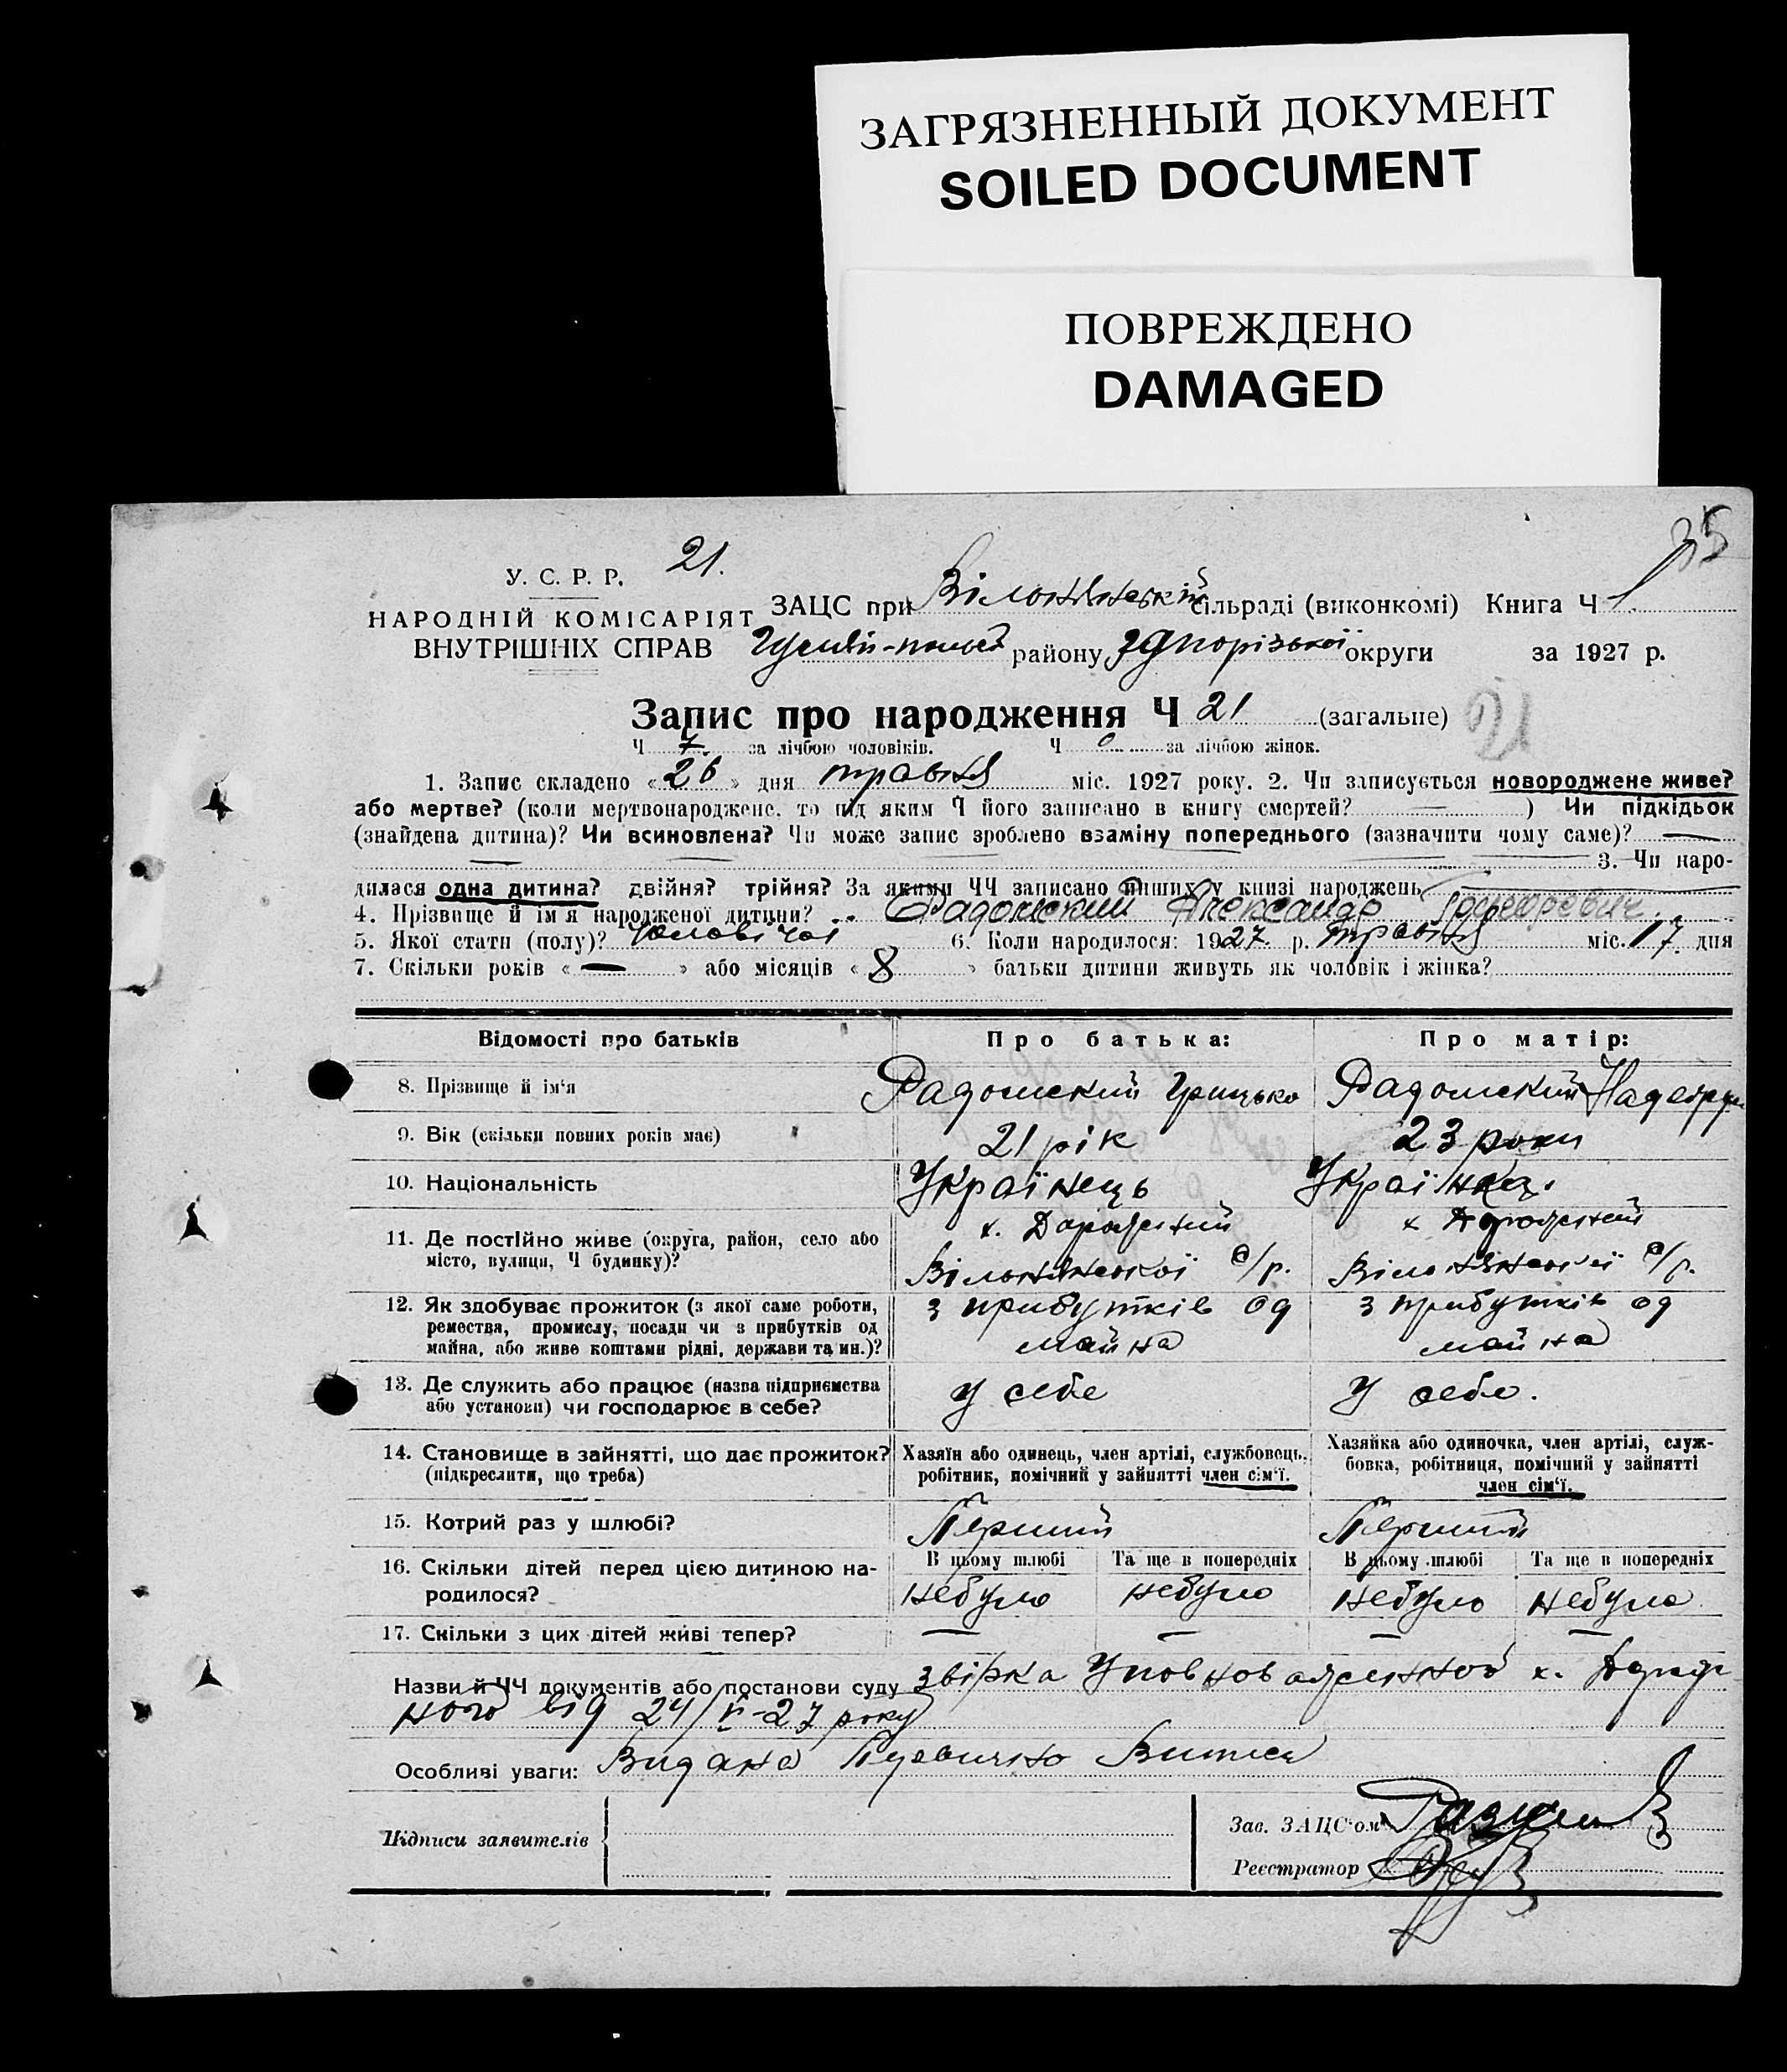 ЗАГРЯЗНЕННЫЙ ДОКУМЕНТ
SOILED DOCUMENT
ПОВРЕЖДЕНО
DAMAGED
35
21.
У. С. Р. Р.
НАРОДНІЙ КОМІСАРІЯТ
ВНУТРІШНІХ СПРАВ
ЗАЦС при Вільнянській сільраді (виконкомі) Книга Ч 1
району Запорізької округи за 1927 р.
Запис про народження Ч 21 (загальне) 21
Ч 7 за лічбою чоловіків. Ч 0 за лічбою жінок.
1. Запис складено «26» дня травня міс. 1927 року. 2. Чи записується новороджене живе?
або мертве? (коли мертвонароджене, то під яким Ч його записано в книгу смертей? — ) Чи підкідьок
(знайдена дитина)? Чи всиновлена? Чи може запис зроблено взаміну попереднього (зазначити чому саме)? —
3. Чи наро-
дилася одна дитина? двійня? трійня? За якими ЧЧ записано инших у книзі народжень
4. Прізвище й ім'я народженої дитини? Радомский Александр
5. Якої стати (полу)? Чоловічої 6. Коли народилося: 1927 р. травня міс. 17 дня
7. Скільки років « — » або місяців « 8 » батьки дитини живуть як чоловік і жінка?
Відомості про батьків
Про батька:
Про матір:
8. Прізвище й ім'я
Радомский Грицько
Радомский
9. Вік (скільки повних років має)
21 рік
23 роки
10. Національність
Українець
Українка
11. Де постійно живе (округа, район, село або
місто, вулиця, Ч будинку)?
х.
Вільнянської с/р.
х.
Вільнянської с/р.
12. Як здобуває прожиток (з якої саме роботи,
ремества, промислу, посади чи з прибутків од
майна, або живе коштами рідні, держави та ин.)?
з прибутків од
майна
з прибутків од
майна
13. Де служить або працює (назва підприємства
або установи) чи господарює в себе?
У себе
У себе.
14. Становище в зайнятті, що дає прожиток?
(підкреслити, що треба)
Хазяїн або одинець, член артілі, службовець,
робітник, помічний у зайнятті член сім'ї.
Хазяйка або одиночка, член артілі, служ-
бовка, робітниця, помічний у зайнятті
член сім'ї.
15. Котрий раз у шлюбі?
Перший
Перший
16. Скільки дітей перед цією дитиною на-
родилося?
В цьому шлюбі
Та ще в попередніх
В цьому шлюбі
Та ще в попередніх
небуло
небуло
небуло
небуло
17. Скільки з цих дітей живі тепер?
— — — —
Назви й ЧЧ документів або постанови суду звірка х.
ного від 24/V-27 року
Особливі уваги: Видана
Підписи заявителів
Зав. ЗАЦС'ом
Реєстратор